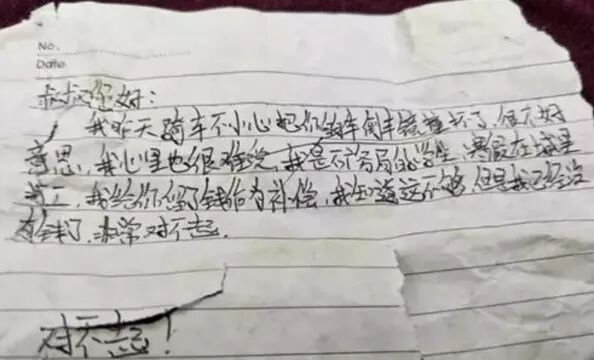 No.
Date
叔叔您好:
我昨天骑车不小心把你的车倒车镜撞坏了,很不好
意思,我心里也很难受,我是一个学生,寒假在城里
打工,我给你留了钱作为补偿,我知道这不够,但是我已经没
有钱了,非常对不起.
对不起!